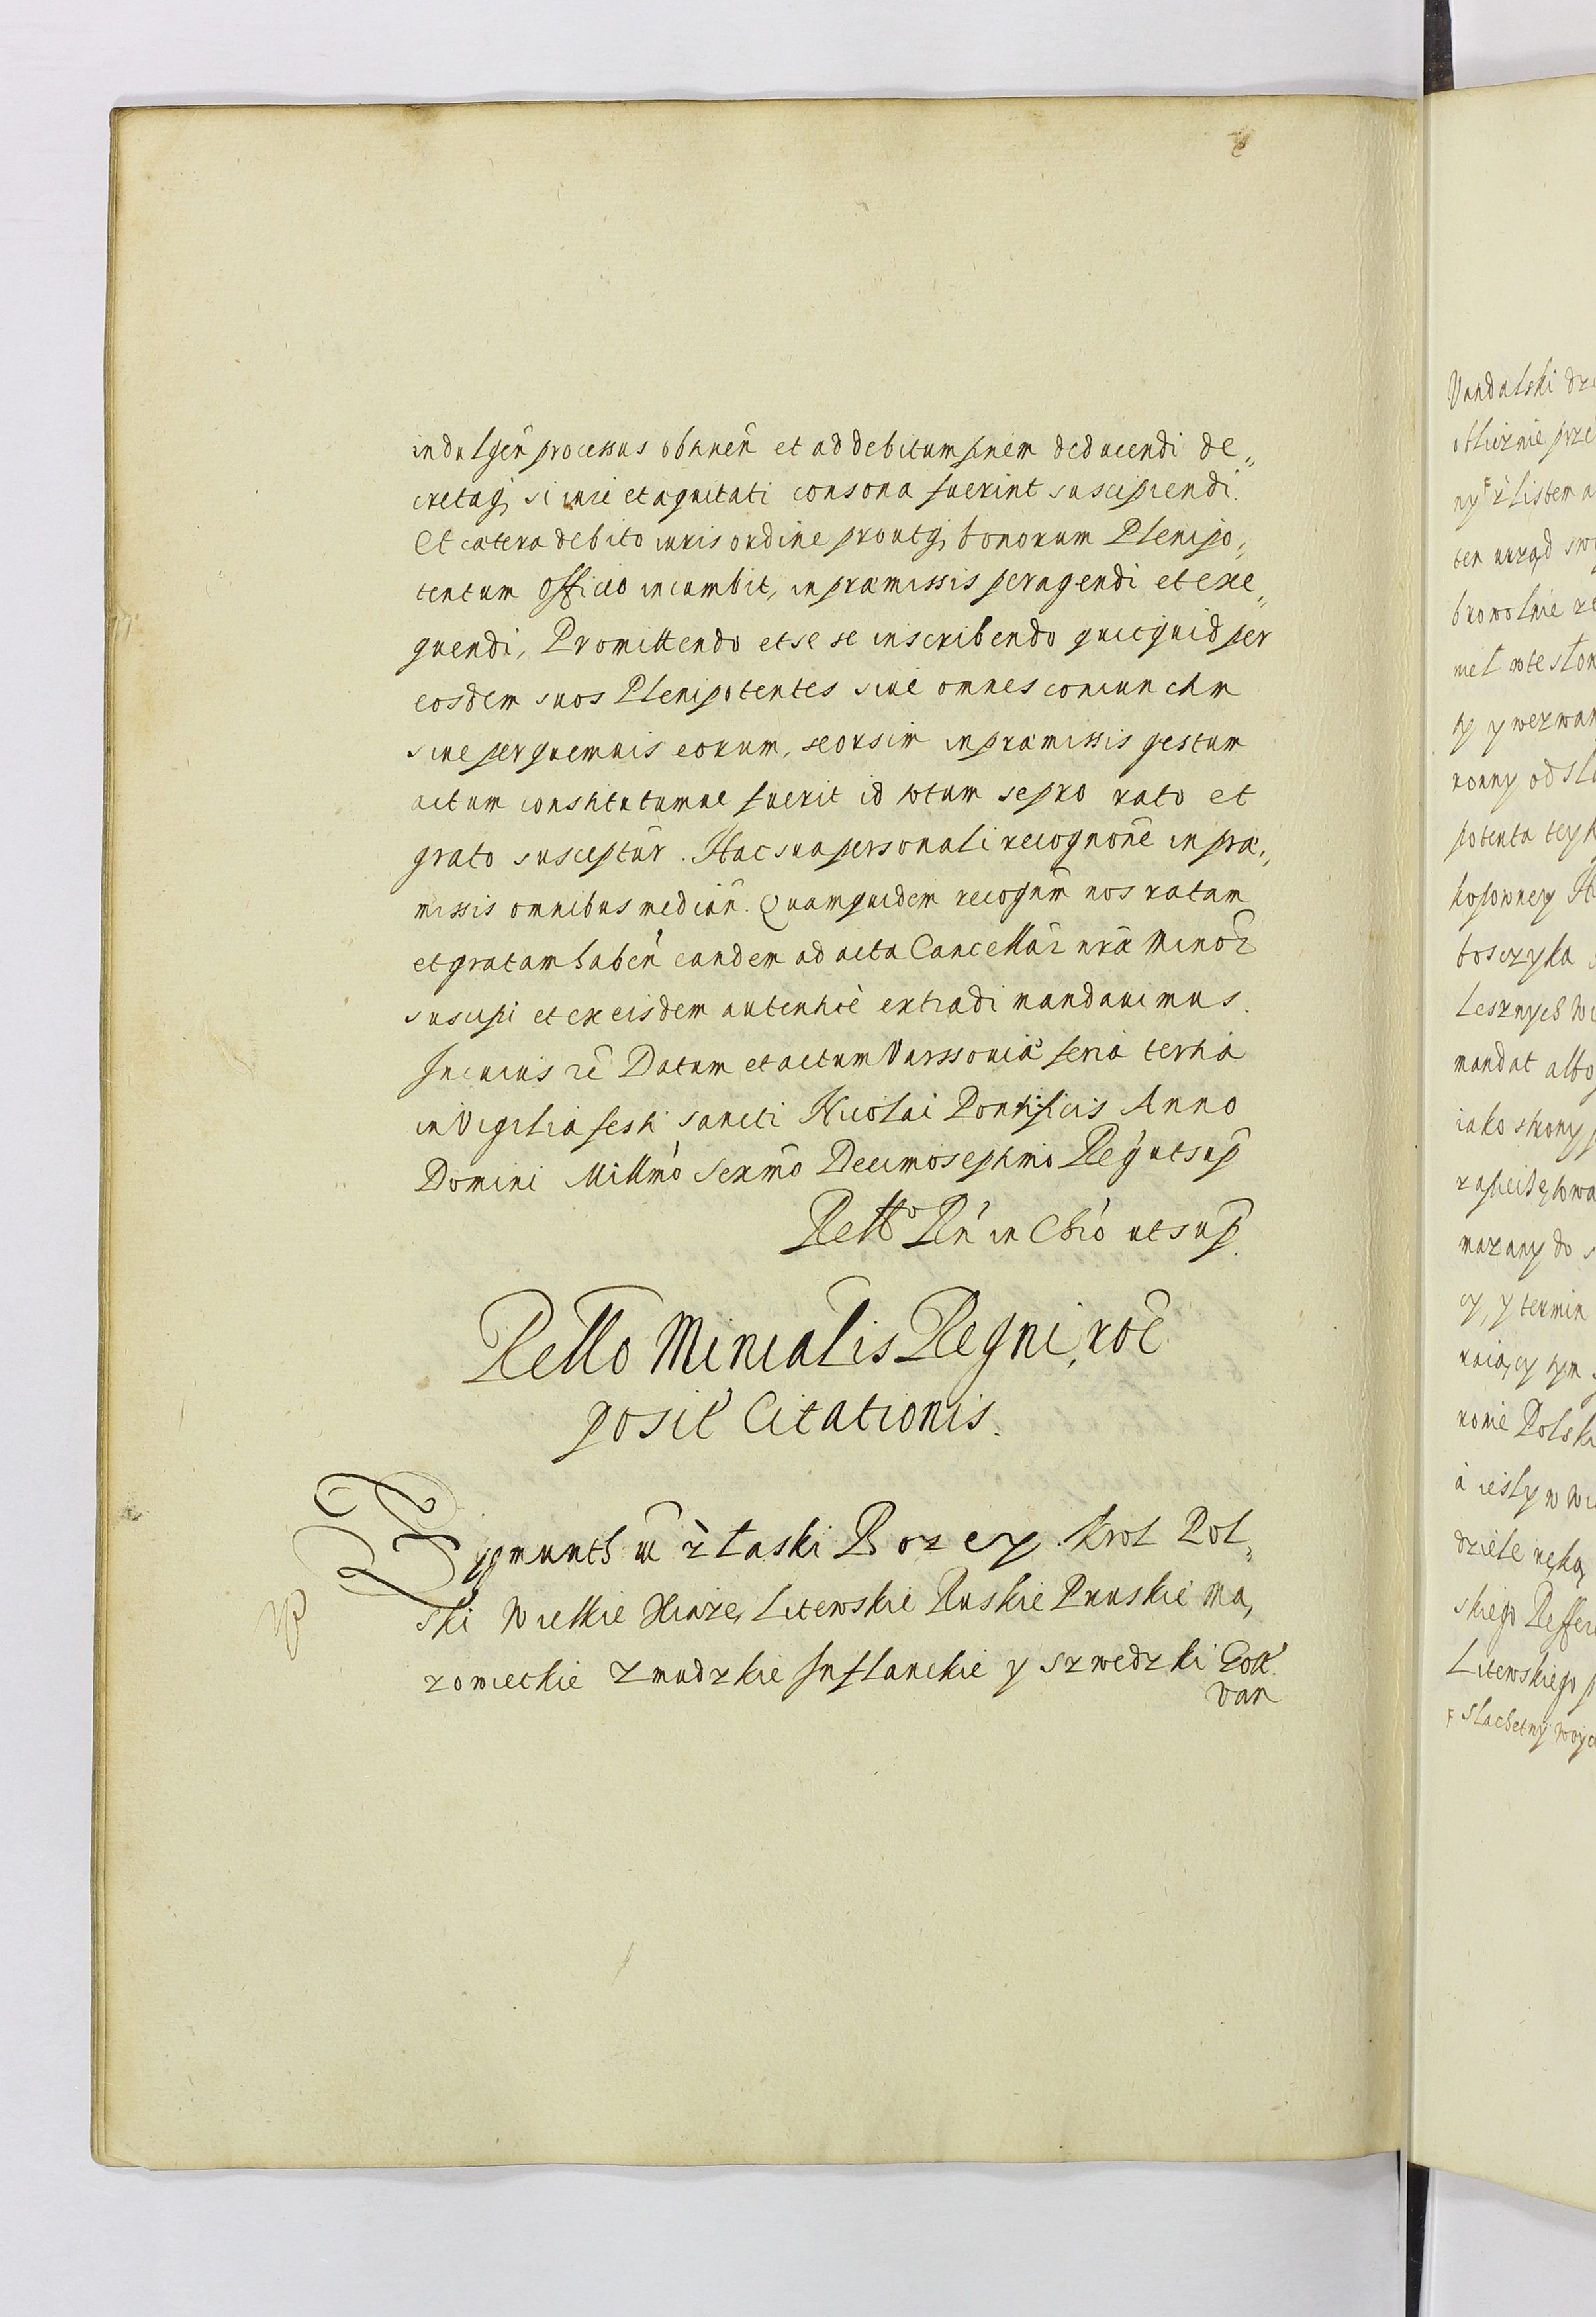 indulgeñ processus obtineñ et ad debitum finem deducendi de„
cretaq, si iuri et aquitati consona fuerint suscipiendi.
Et catera debito iuris ordine proutq, bonorum Plenipo„
tentum officio incumbit, in pramissis peragendi et exe„
quendi, Promittendo et se se inscribendo quicquid per
eosdem suos Plenipotentes siue omnes coniunctim
siue per quemuis eorum, seorsim in pramissis gestum
actum constitutumue fuerit id totum se pro rato et
grato susceptur̃. Hac sua personali recognone in præ„
missis omnibus median̄. Quamquidem recognm̄ nos ratam
et gratam haben̄ eandem ad acta Cancellar̄ nrã Minor̄
suscipi et ex eisdem autentice extradi mandauimus.
In cuius rē Datum et actum Varssouiæ feria tertia
in Vigilia festi sancti Nicolai Pontificis Anno
Domini Millmo Sexmo Decimoseptimo Reg ut sup
Retto Rn in Cbro ut sup.
Retto Minialis Regni, roē
posit Citationis.
Zygmunth III z łaski Bozey Krol Pol„
ski Wielkie Xiaze, Litewskie Ruskie Pruskie Ma,
zowieckie Zmudzkie Inflanckie y szwedzki Gott.
Van
Vandalski dzi
obliznie prze
ny z listem a
ten urząd swo
browolnie ze
niel w te słow
ty y wezwan
ronny od sla
potenta teyk
boszczyka
Lesznych Wi
mandat albo
iako strony p
mazany do s
cy, y termin
raiącÿ tym
ronie Polski
a iesly w Wi
dziele ręką
skiego Reffere
Litewskiego p
Slachetny Woyc